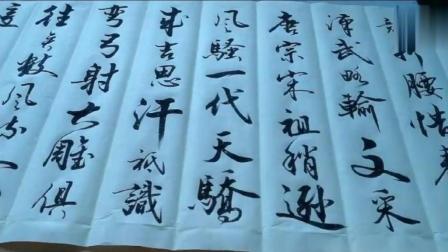 折腰惜
漢武略輸文采
唐宗宋祖稍遜
風騷一代天驕
成吉思汗祇識
彎弓射大雕俱
往矣數風流人